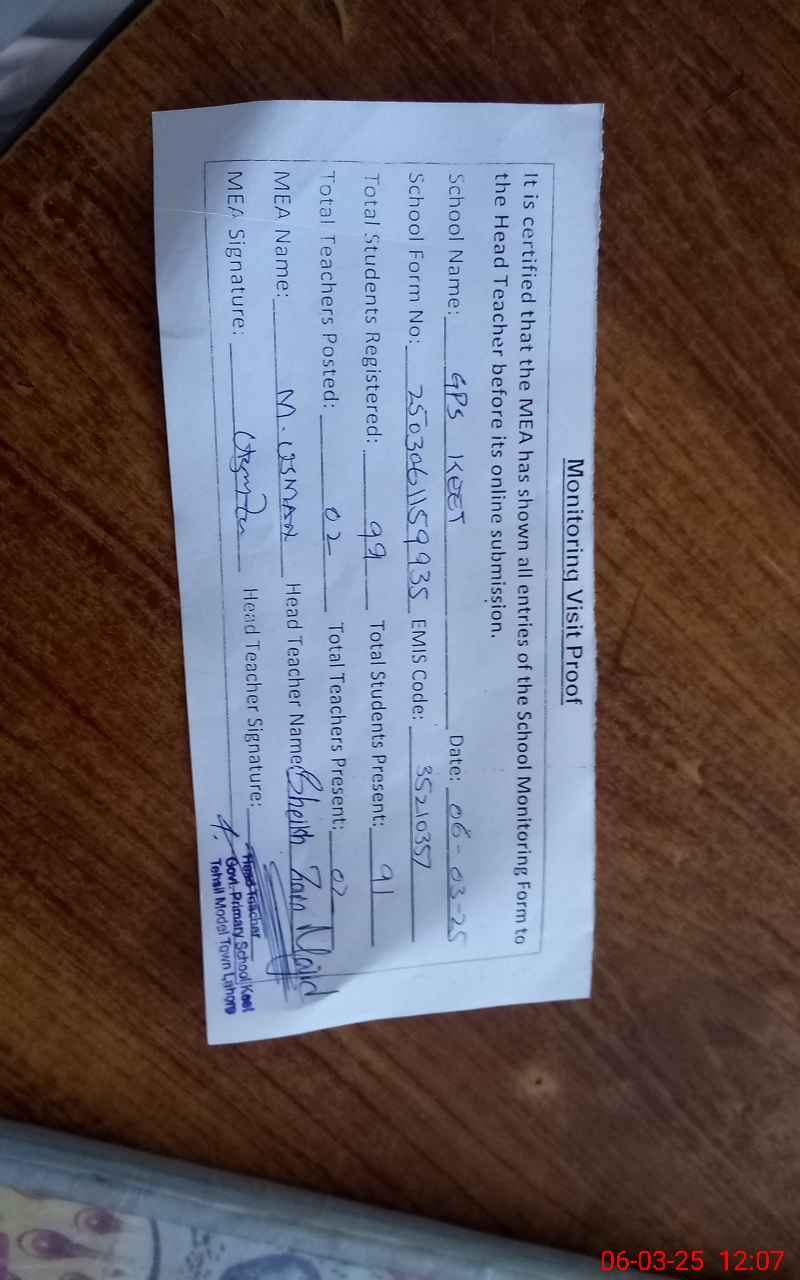 Monitoring Visit Proof
It is certified that the MEA has shown all entries of the School Monitoring Form to
the Head Teacher before its online submission.
School Name: GPS KEET Date: 06-03-25
School Form No: 2503061159935 EMIS Code: 35210357
Total Students Registered: 99 Total Students Present: 91
Total Teachers Posted: 02 Total Teachers Present: 02
MEA Name: M. USMAN Head Teacher Name: Sheikh Zain Majid
MEA Signature: Head Teacher Signature:
Head Teacher
Govt. Primary School Keet
Tehsil Model Town Lahore
06-03-25 12:07